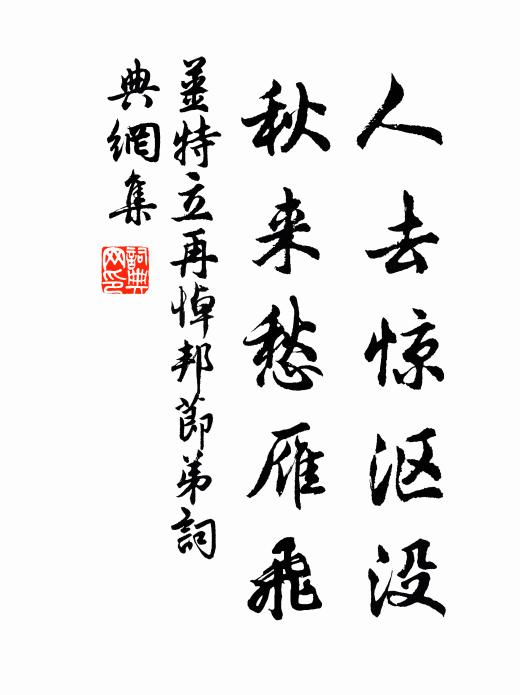 人去惊沤没
秋来愁雁飛
姜特立再悼邦節弟詞
典網集
詞典
网印